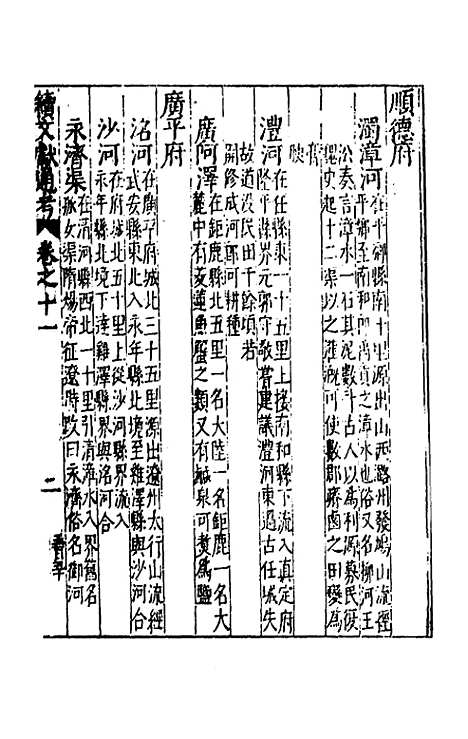 順德府
濁漳河在平鄉縣南十里源出山西潞州發鳩山流徑
平鄉至南和即禹貢之漳水也俗又名柳河王
沿奏言漳水一石其泥數斗古人以為利源募民復
史起十二渠以之灌溉可使數郡瘠鹵之田變為
膏
腴
澧河在任縣東一十五里上接南和縣下流入真定府
隆平縣界元郭守敬嘗建議澧河東過古任城失
故道沒民田千餘頃若
開修成河即可耕種
廣阿澤在鉅鹿縣北五里一名大陸一名鉅鹿一名大
麓中有菱蓮魚蟹之類又有鹹泉可煑為鹽
廣平府
洺河在廣平府城北三十五里源出遼州太行山流經
武安縣東北入永年縣北境至雞澤縣與沙河合
沙河在府城北五十里上從沙河縣界流入
永年縣北境下達雞澤縣界與洺河合
永濟渠在清河縣西北一十里引清漳水入界舊名
孤女渠隋煬帝征遼時改曰永濟俗名御河
續文獻通考 卷之十一 二